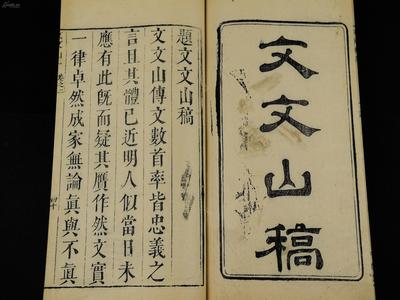 文文山稿
題文文山稿
文文山傳文數首率皆忠義之
言且其體已近明人似當日未
應有此既而疑其贋作然文實
一律卓然成家無論眞與不眞